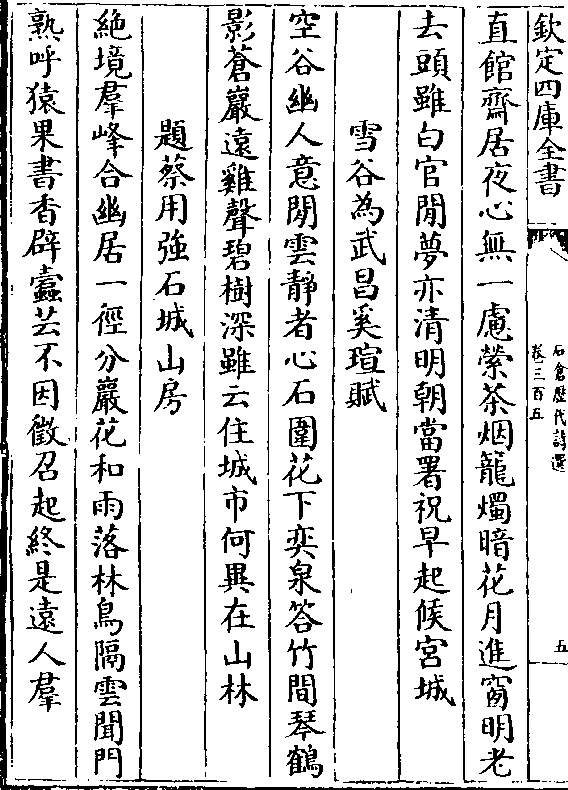 欽定四庫全書
石倉歷代詩選
卷三百五
五
直館齋居夜心無一慮縈茶烟籠燭暗花月進窗明老
去頭雖白官閒夢亦清明朝當署祝早起候宮城
雪谷為武昌奚瑄賦
空谷幽人意閒雲靜者心石圍花下奕泉答竹間琴鶴
影蒼巖遠雞聲碧樹深雖云住城市何異在山林
題蔡用強石城山房
絶境羣峰合幽居一徑分巖花和雨落林鳥隔雲聞門
孰呼猿果書杳辟蠧芸不因徵召起終是遠人羣